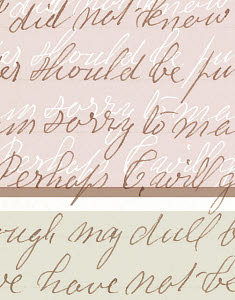 did not know
er should be pu
am sorry to ma
Perhap I, will g
ough my dull b
ve have not be